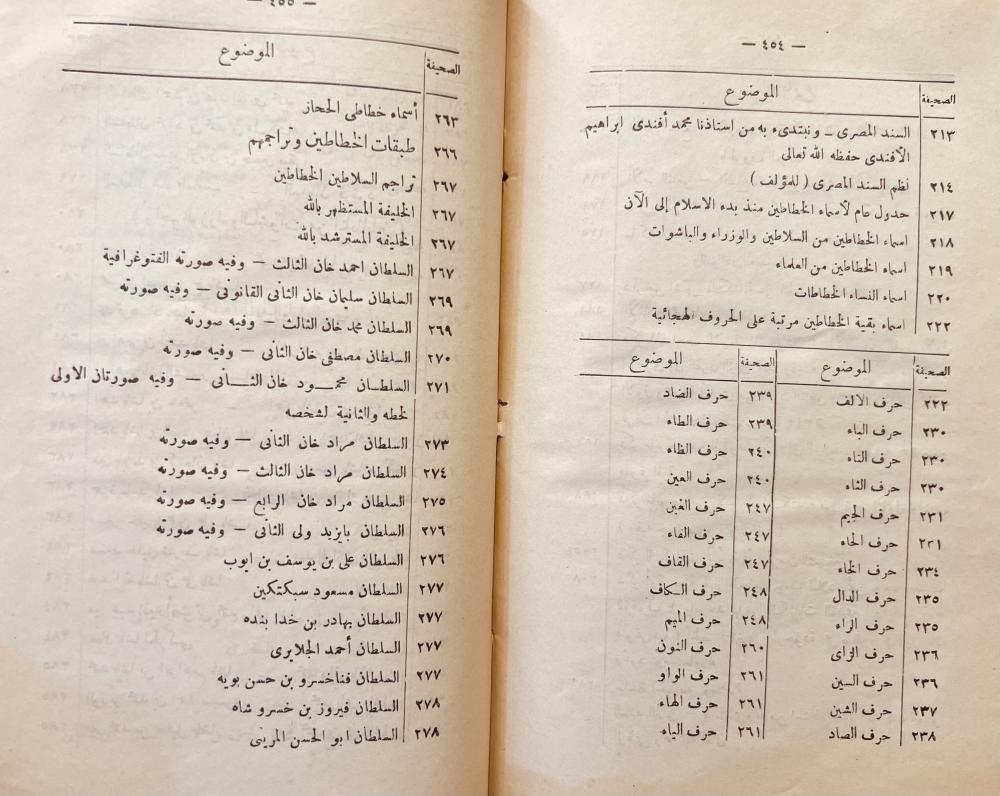 — ٤٥٤ —
الصحيفة الموضوع
٢١٣ السند المصرى ـ ونبتدىء به من استاذنا محمد أفندى ابراهيم
الأفندى حفظه الله تعالى
٢١٤ نظم السند المصرى ( للمؤلف )
٢١٧ جدول عام لأسماء الخطاطين منذ بدء الاسلام إلى الآن
٢١٨ اسماء الخطاطين من السلاطين والوزراء والباشوات
٢١٩ اسماء الخطاطين من العلماء
٢٢٠ اسماء النساء الخطاطات
٢٢٢ اسماء بقية الخطاطين مرتبة على الحروف الهجائية
الصحيفة الموضوع الصحيفة الموضوع
٢٢٢ حرف الالف ٢٣٩ حرف الضاد
٢٣٠ حرف الباء ٢٣٩ حرف الطاء
٢٣٠ حرف التاء ٢٤٠ حرف الظاء
٢٣٠ حرف الثاء ٢٤٠ حرف العين
٢٣١ حرف الجيم ٢٤٧ حرف الغين
٢٣١ حرف الحاء ٢٤٧ حرف الفاء
٢٣٤ حرف الخاء ٢٤٧ حرف القاف
٢٣٥ حرف الدال ٢٤٨ حرف الكاف
٢٣٥ حرف الراء ٢٤٨ حرف الميم
٢٣٦ حرف الزاى ٢٦٠ حرف النون
٢٣٦ حرف السين ٢٦١ حرف الواو
٢٣٧ حرف الشين ٢٦١ حرف الهاء
٢٣٨ حرف الصاد ٢٦١ حرف الياء
— ٤٥٥ —
الصحيفة الموضوع
٢٦٣ أسماء خطاطى الحجاز
٢٦٦ طبقات الخطاطين وتراجمهم
٢٦٧ تراجم السلاطين الخطاطين
٢٦٧ الخليفة المستظهر بالله
٢٦٧ الخليفة المسترشد بالله
٢٦٧ السلطان احمد خان الثالث — وفيه صورته الفتوغرافية
٢٦٩ السلطان سليمان خان الثانى القانونى — وفيه صورته
٢٦٩ السلطان محمد خان الثالث — وفيه صورته
٢٧٠ السلطان مصطفى خان الثانى — وفيه صورته
٢٧١ السلطان محمود خان الثانى — وفيه صورتان الاولى
لخطه والثانية لشخصه
٢٧٣ السلطان مراد خان الثانى — وفيه صورته
٢٧٤ السلطان مراد خان الثالث — وفيه صورته
٢٧٥ السلطان مراد خان الرابع — وفيه صورته
٢٧٦ السلطان بايزيد ولى الثانى — وفيه صورته
٢٧٦ السلطان على بن يوسف بن ايوب
٢٧٧ السلطان مسعود سبكتكين
٢٧٧ السلطان بهادر بن خدا بنده
٢٧٧ السلطان أحمد الجلايرى
٢٧٧ السلطان فناخسرو بن حسن بويه
٢٧٨ السلطان فيروز بن خسرو شاه
٢٧٨ السلطان ابو الحسن المرينى